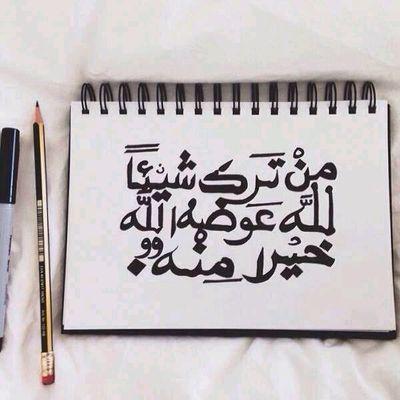 مِنْ تَرَك شيْئاً
للَّه عَوضهُ اللَّه
خيْرا مِنْه